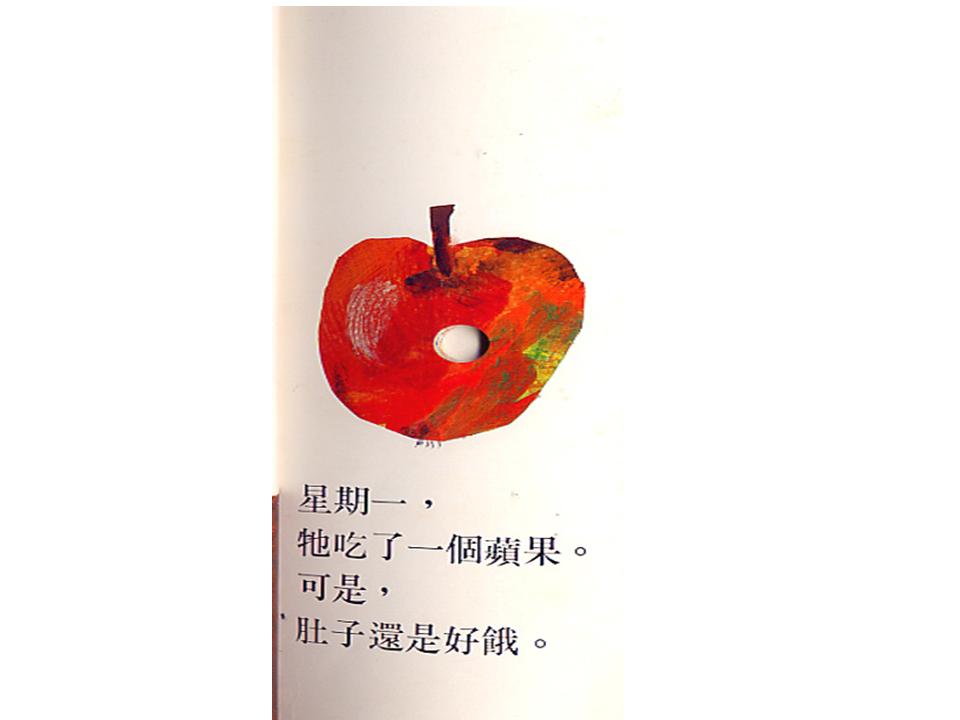 星期一，
牠吃了一個蘋果。
可是，
肚子還是好餓。